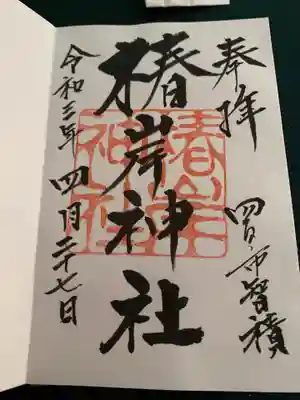 奉拝
四日市智積
椿岸神社
椿岸神社
令和三年四月二十七日